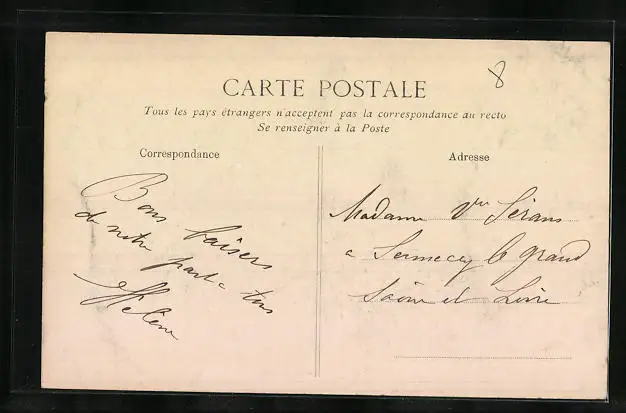 8
CARTE POSTALE
Tous les pays étrangers n'acceptent pas la correspondance au recto
Se renseigner à la Poste
Correspondance
Bons baisers
de notre part a tous
Hélène
Adresse
Madame Vve
a Sennecey le Grand
Saône et Loire